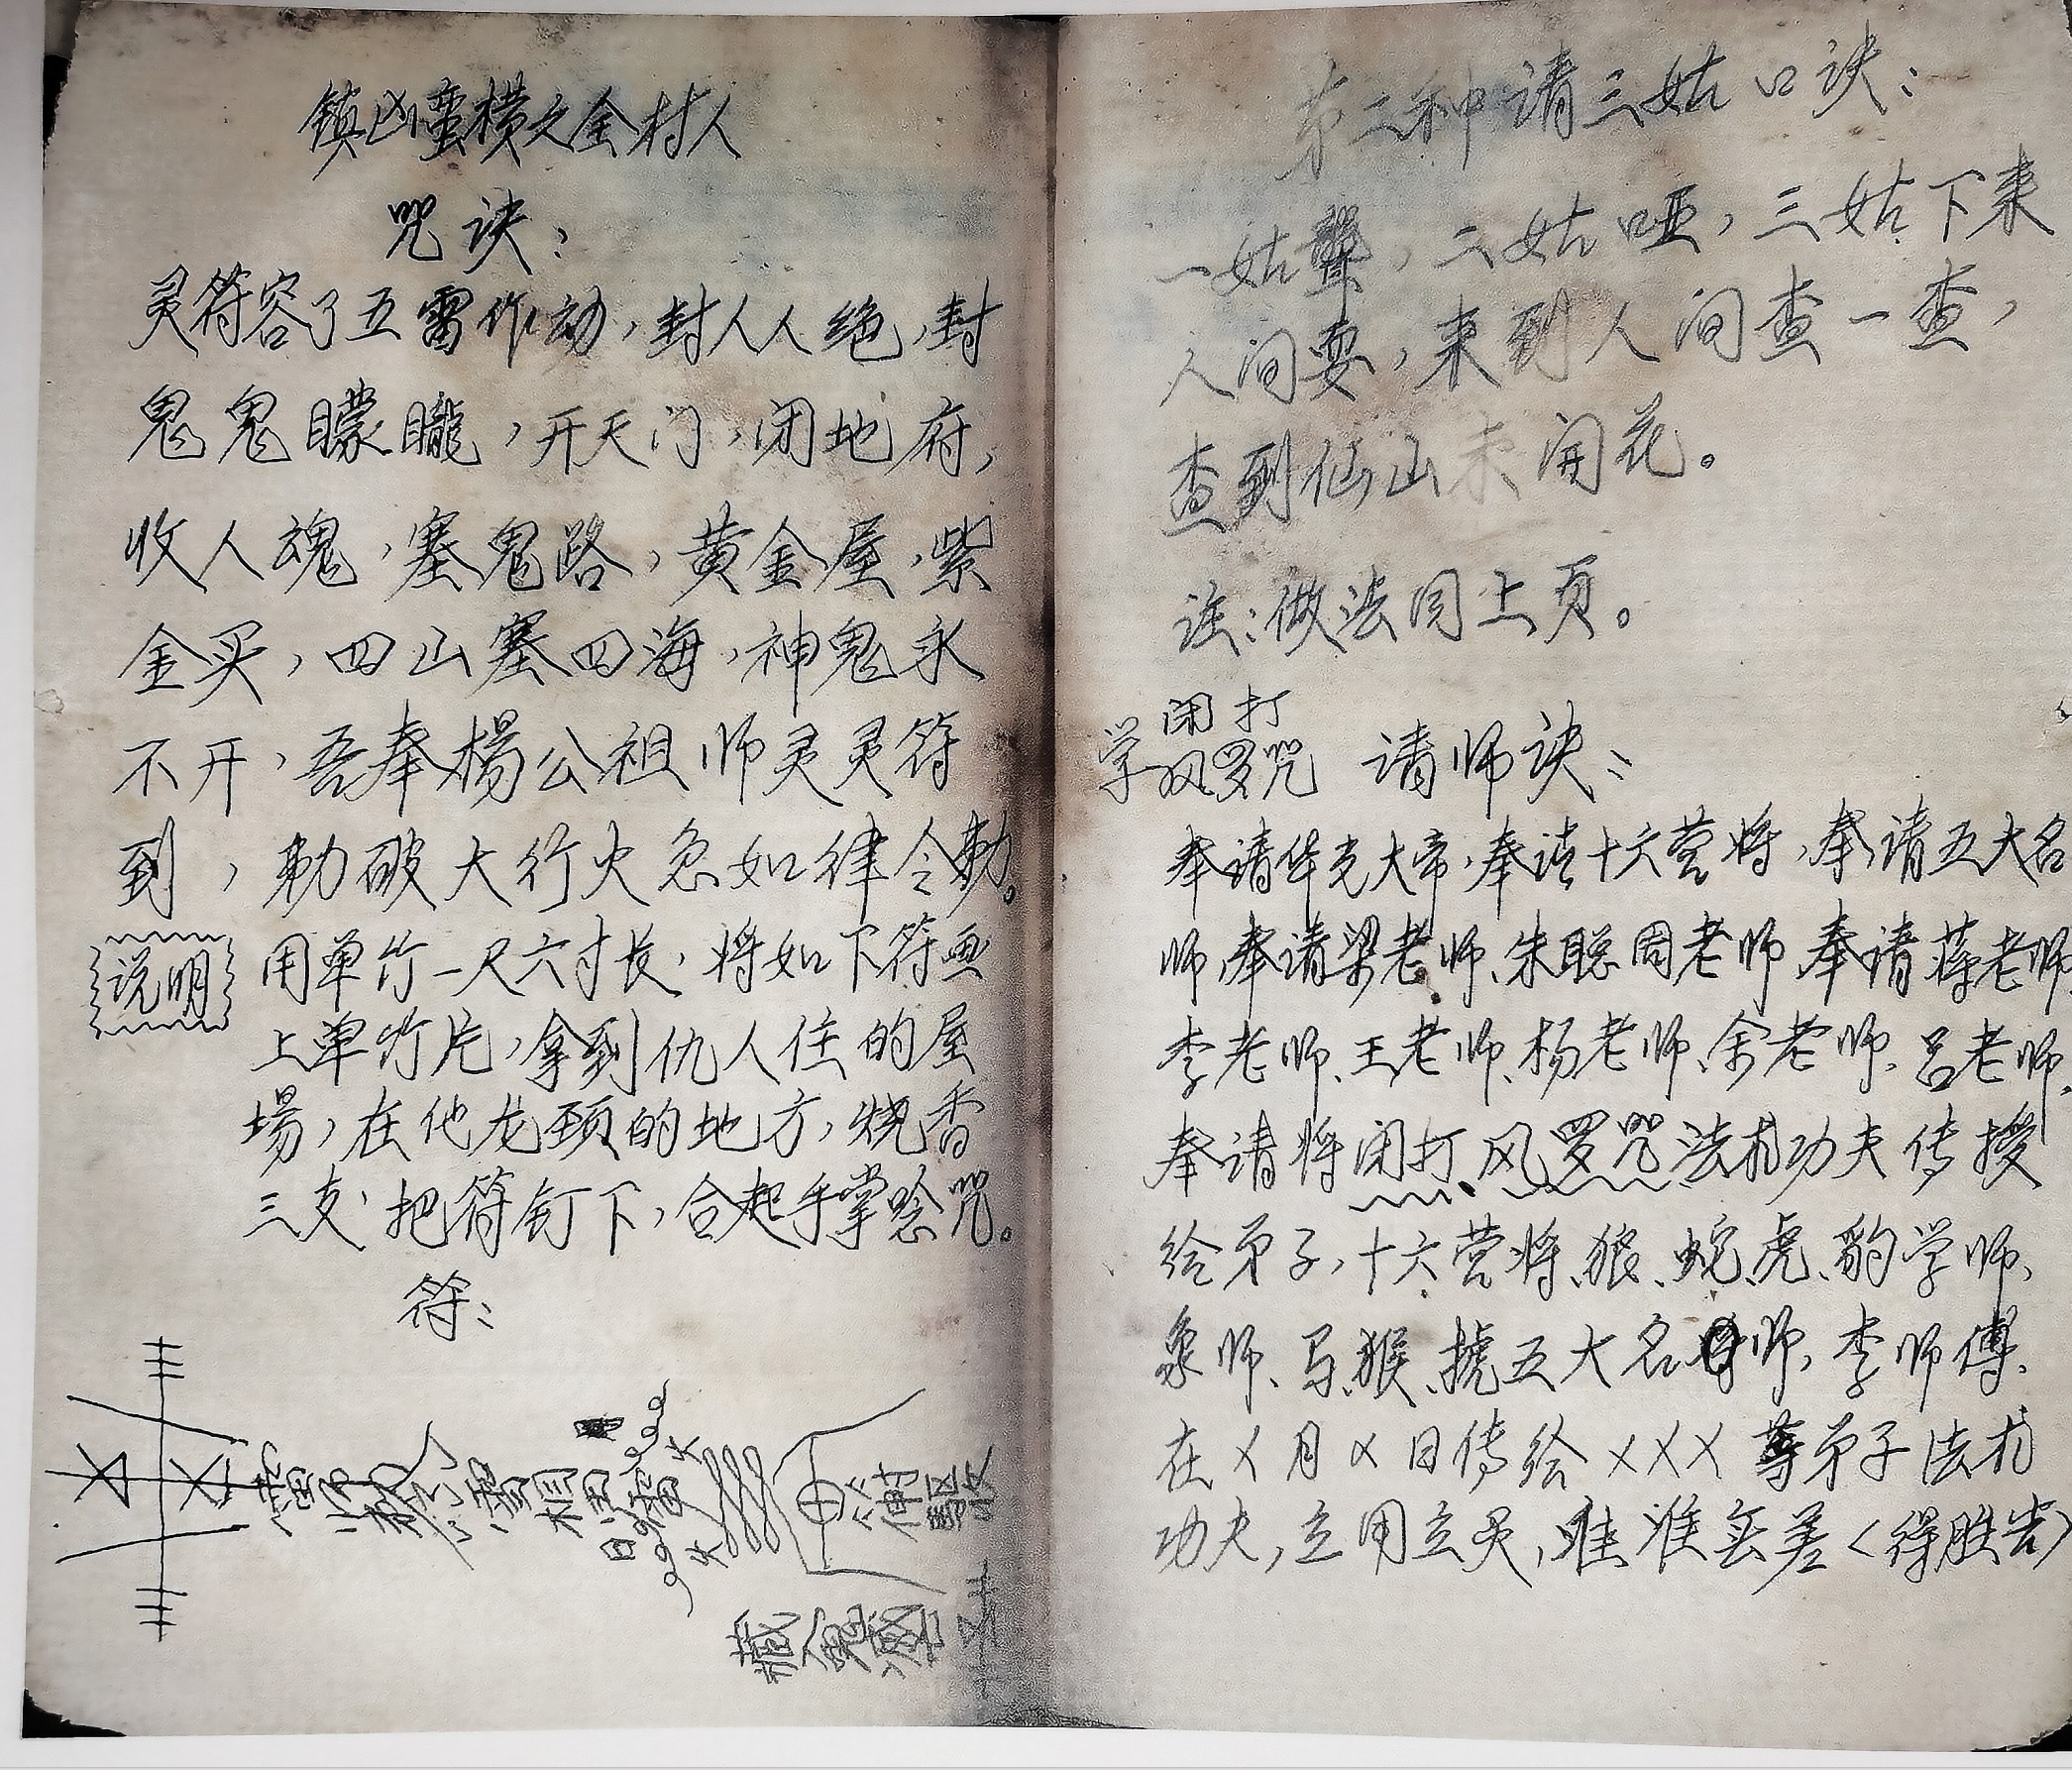 镇凶蛮横之全村人
咒诀：
灵符容了五雷作动，封人人绝，封
鬼鬼朦朧，开天门，闭地府，
收人魂，塞鬼路，黄金屋，紫
金买，四山塞四海，神鬼永
不开，吾奉楊公祖师灵灵符
到，勅破大行火急如律令勅。
说明
用单竹一尺六寸长，将如下符画
上单竹片，拿到仇人住的屋
場，在他龙颈的地方，烧香
三支，把符钉下，合起手掌唸咒。
符：
第二种请三姑口诀：
一姑聾，二姑哑，三姑下来
人间耍，来到人间查一查，
查到仙山未開花。
註：做法同上页。
闭打
学风罗咒 请师诀：
奉请华光大帝，奉请十六营将，奉请五大名
师，奉请梁老师、朱聪周老师，奉请蒋老师、
李老师、王老师、杨老师、余老师、吕老师，
奉请将闭打、风罗咒法术功夫传授
给弟子，十六营将、狼、蛇、虎、豹学师、
象师、马、猴、摅五大名师，李师傅、
在X月X日传给XXX等弟子法术
功夫，立用立灵，唯准无差〈得胜告〉